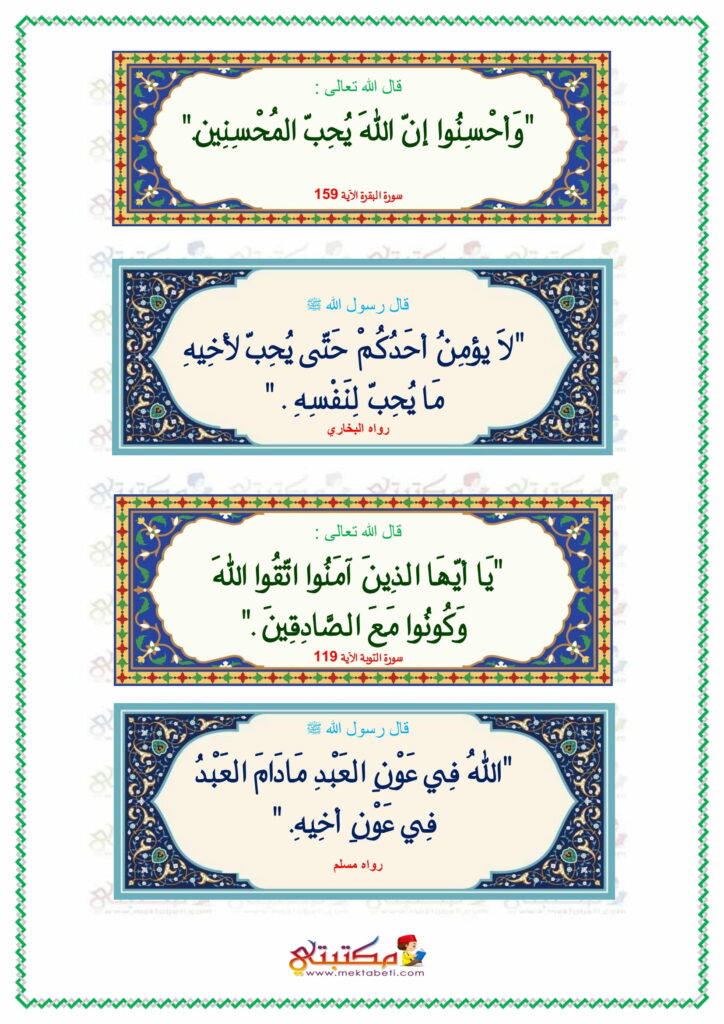 قال الله تعالى :
"وَأحْسِنُوا إنّ اللهَ يُحِبّ المُحْسِنِين."
سورة البقرة الآية 159
قال رسول الله ﷺ
"لاَ يؤمِنُ أحَدُكُمْ حَتّى يُحِبّ لأخِيهِ
مَا يُحِبّ لِنَفْسِهِ . "
رواه البخاري
قال الله تعالى :
"يَا أيّهَا الذِينَ آمَنُوا اتّقُوا اللهَ
وَكُونُوا مَعَ الصَّادِقِينَ ."
سورة التوبة الآية 119
قال رسول الله ﷺ
"اللهُ فِي عَوْنِ العَبْدِ مَادَامَ العَبْدُ
فِي عَوْنِ أخِيهِ. "
رواه مسلم
مكتبتي
www.mektabeti.com